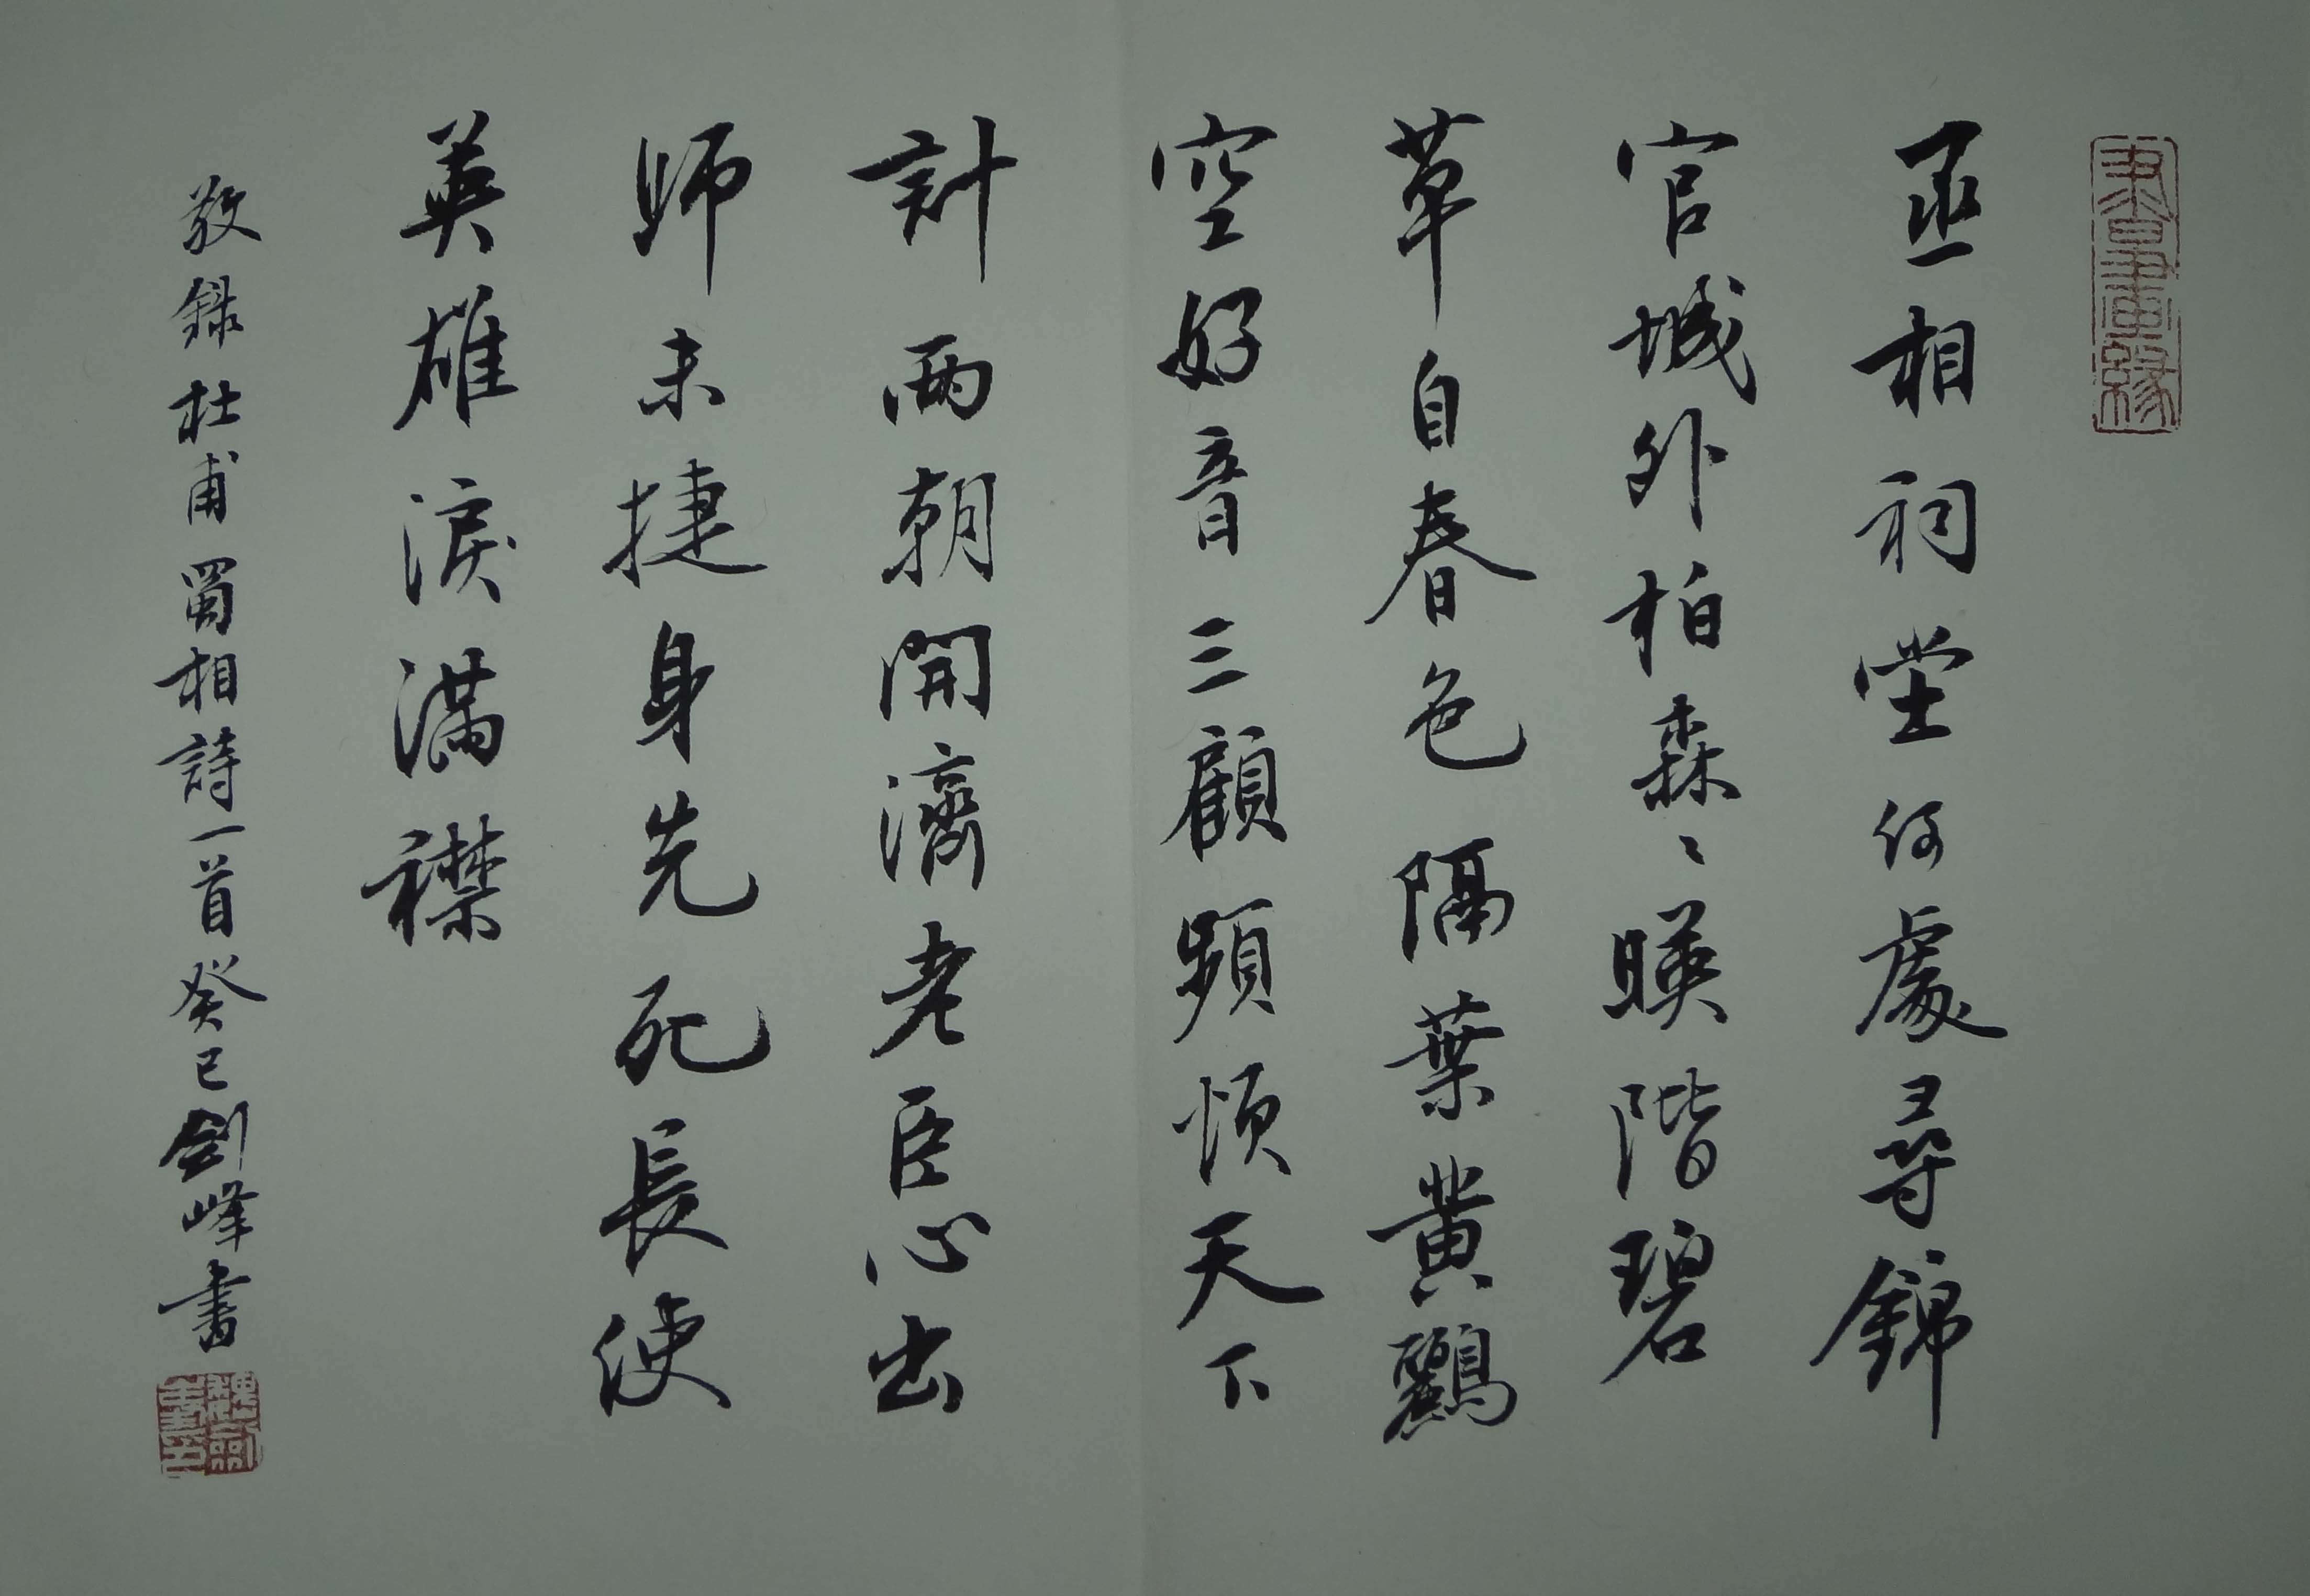 書畫緣
丞相祠堂何處尋錦
官城外柏森〻暎階碧
草自春色隔葉黃鸝
空好音三顧頻煩天下
計兩朝開濟老臣心出
師未捷身先死長使
英雄淚滿襟
敬錄杜甫蜀相詩一首癸巳劍峰書